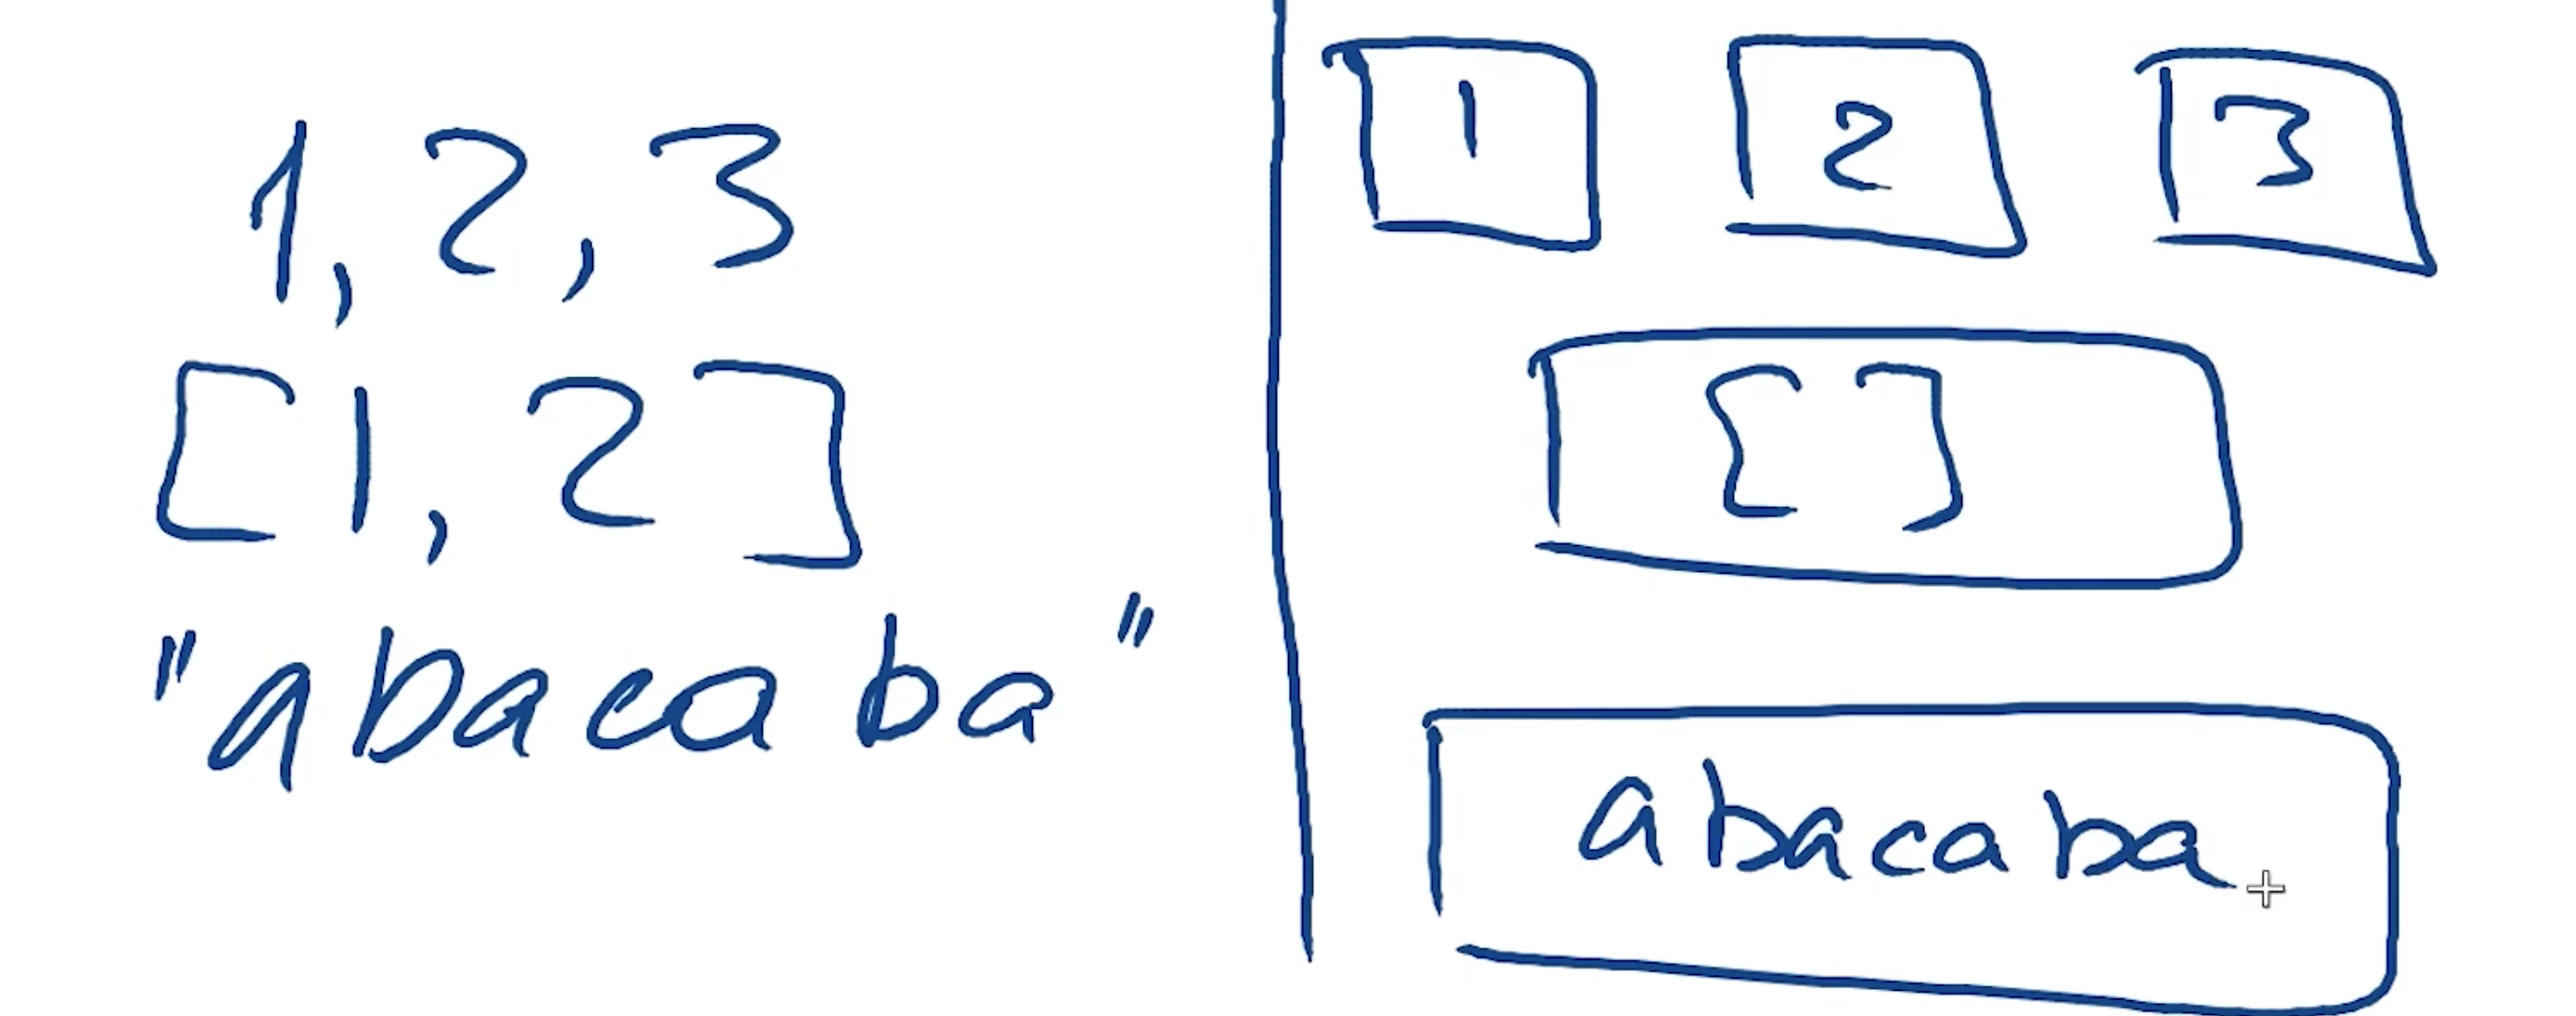 1, 2, 3
[1, 2]
"abacaba"
1 2 3
[ ]
abacaba